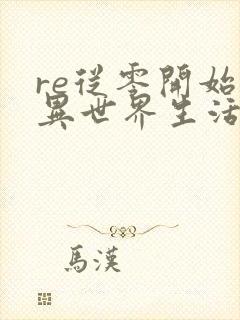 re從零開始
異世界生活
馬漢